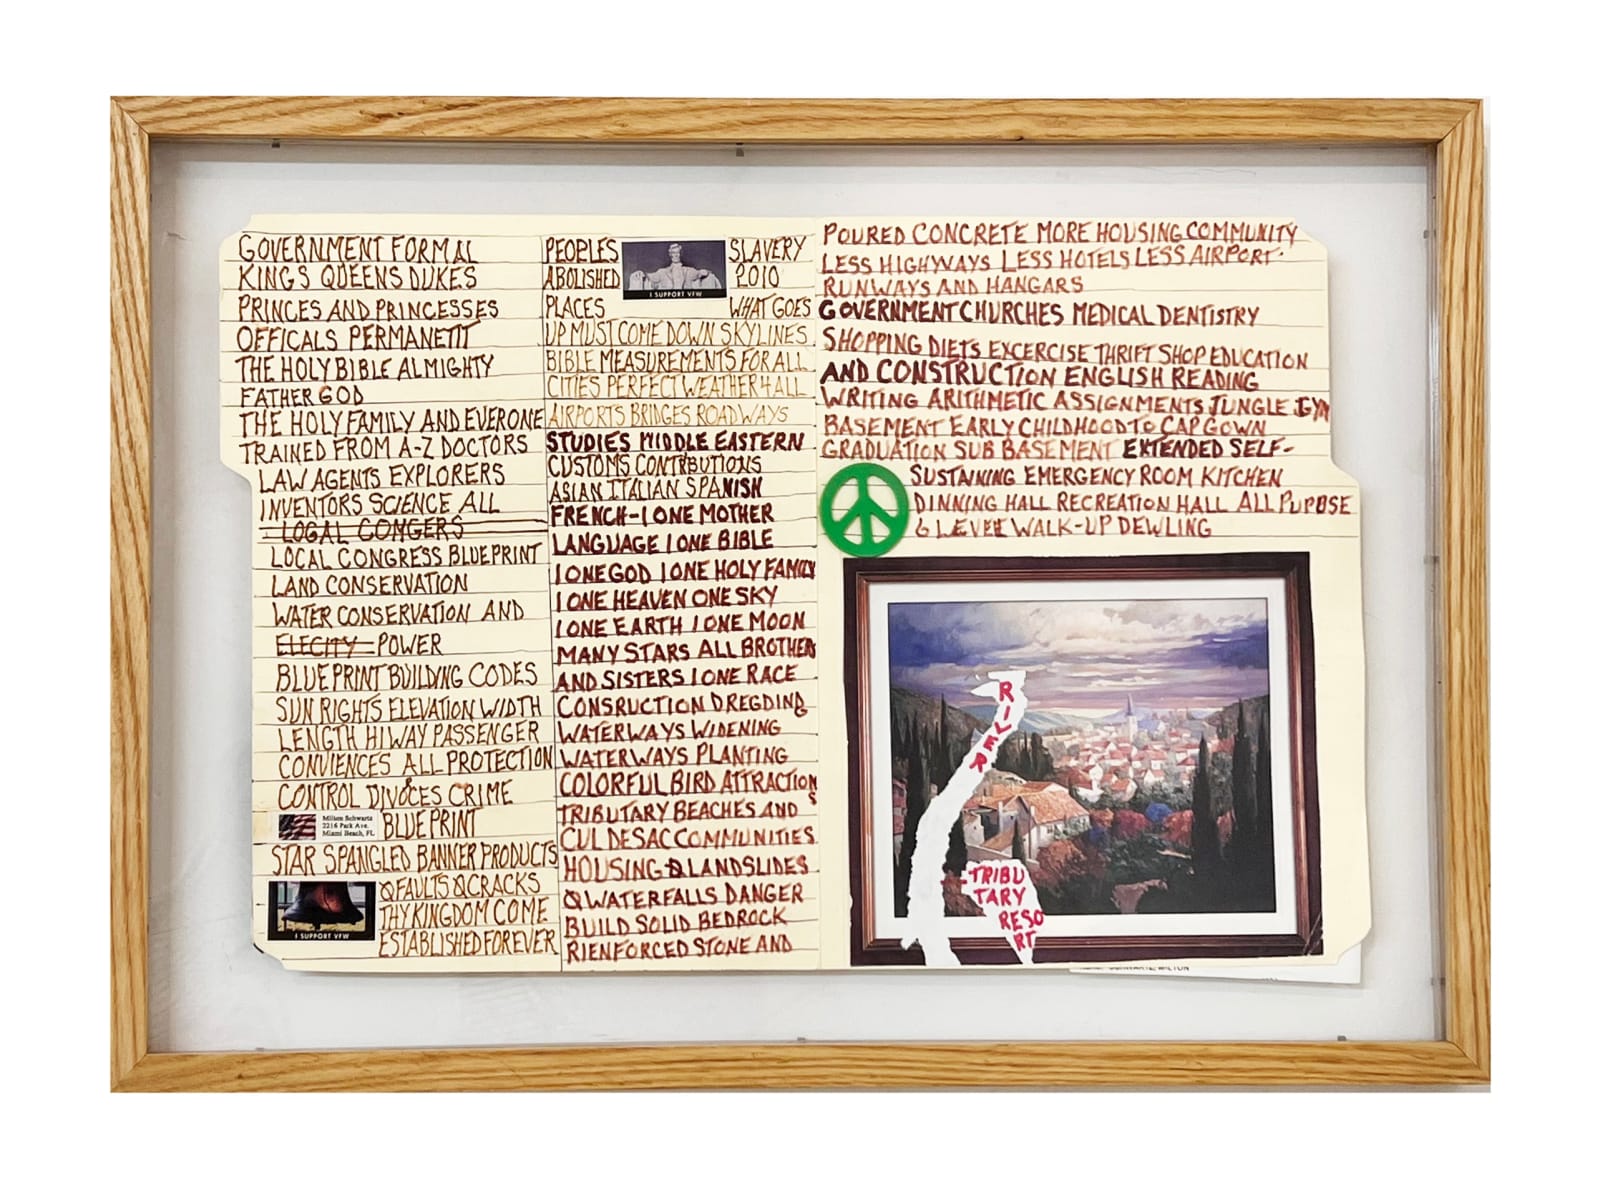 GOVERNMENT FORMAL
KINGS QUEENS DUKES
PRINCES AND PRINCESSES
OFFICALS PERMANETT
THE HOLY BIBLE ALMIGHTY
FATHER GOD
THE HOLY FAMILY AND EVERONE
TRAINED FROM A-Z DOCTORS
LAW AGENTS EXPLORERS
INVENTORS SCIENCE ALL
LOGAL CONGERS
LOCAL CONGRESS BLUEPRINT
LAND CONSERVATION
WATER CONSERVATION AND
ELECITY POWER
BLUEPRINT BUILDING CODES
SUN RIGHTS ELEVATION WIDTH
LENGTH HIWAY PASSENGER
CONVIENCES ALL PROTECTION
CONTROL DIVOCES CRIME
Milton Schwartz
2216 Park Ave.
Miami Beach, FL
BLUEPRINT
STAR SPANGLED BANNER PRODUCTS
0 FAULTS 0 CRACKS
THY KINGDOM COME
I SUPPORT VFW
ESTABLISHED FOREVER
PEOPLES SLAVERY
ABOLISHED 2010
I SUPPORT VFW
PLACES WHAT GOES
UP MUST COME DOWN SKYLINES
BIBLE MEASUREMENTS FOR ALL
CITIES PERFECT WEATHER 4 ALL
AIRPORTS BRIDGES ROADWAYS
STUDIES MIDDLE EASTERN
CUSTOMS CONTRIBUTIONS
ASIAN ITALIAN SPANISH
FRENCH-1 ONE MOTHER
LANGUAGE 1 ONE BIBLE
1 ONE GOD 1 ONE HOLY FAMILY
1 ONE HEAVEN ONE SKY
1 ONE EARTH 1 ONE MOON
MANY STARS ALL BROTHERS
AND SISTERS 1 ONE RACE
CONSRUCTION DREGDING
WATERWAYS WIDENING
WATERWAYS PLANTING
COLORFUL BIRD ATTRACTIONS
TRIBUTARY BEACHES AND
CUL DESAC COMMUNITIES
HOUSING 0 LANDSLIDES
0 WATERFALLS DANGER
BUILD SOLID BEDROCK
RIENFORCED STONE AND
POURED CONCRETE MORE HOUSING COMMUNITY
LESS HIGHWAYS LESS HOTELS LESS AIRPORT
RUNWAYS AND HANGARS
GOVERNMENT CHURCHES MEDICAL DENTISTRY
SHOPPING DIETS EXCERCISE THRIFT SHOP EDUCATION
AND CONSTRUCTION ENGLISH READING
WRITING ARITHMETIC ASSIGNMENTS JUNGLE GYM
BASEMENT EARLY CHILDHOOD TO CAP GOWN
GRADUATION SUB BASEMENT EXTENDED SELF-
SUSTAINING EMERGENCY ROOM KITCHEN
DINNING HALL RECREATION HALL ALL PURPOSE
6 LEVEL WALK-UP DEWLING
RIVER
TRIBU
TARY
RESO
RT